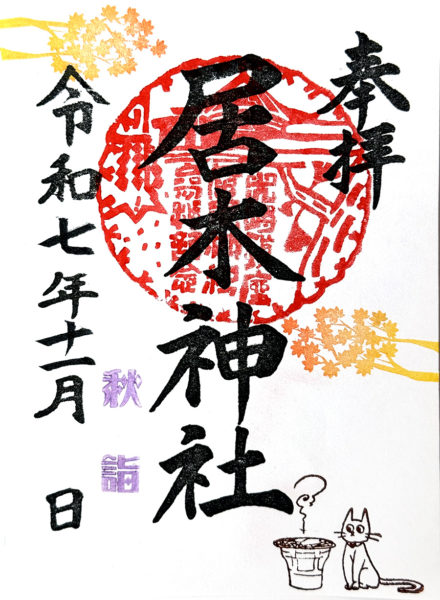 奉拝
居木神社
令和七年十一月 日
秋詣